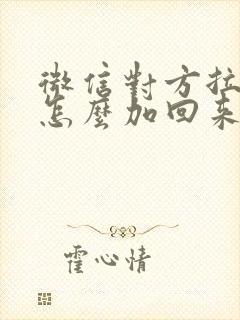 微信對方拉
怎麼加回來
霍心情